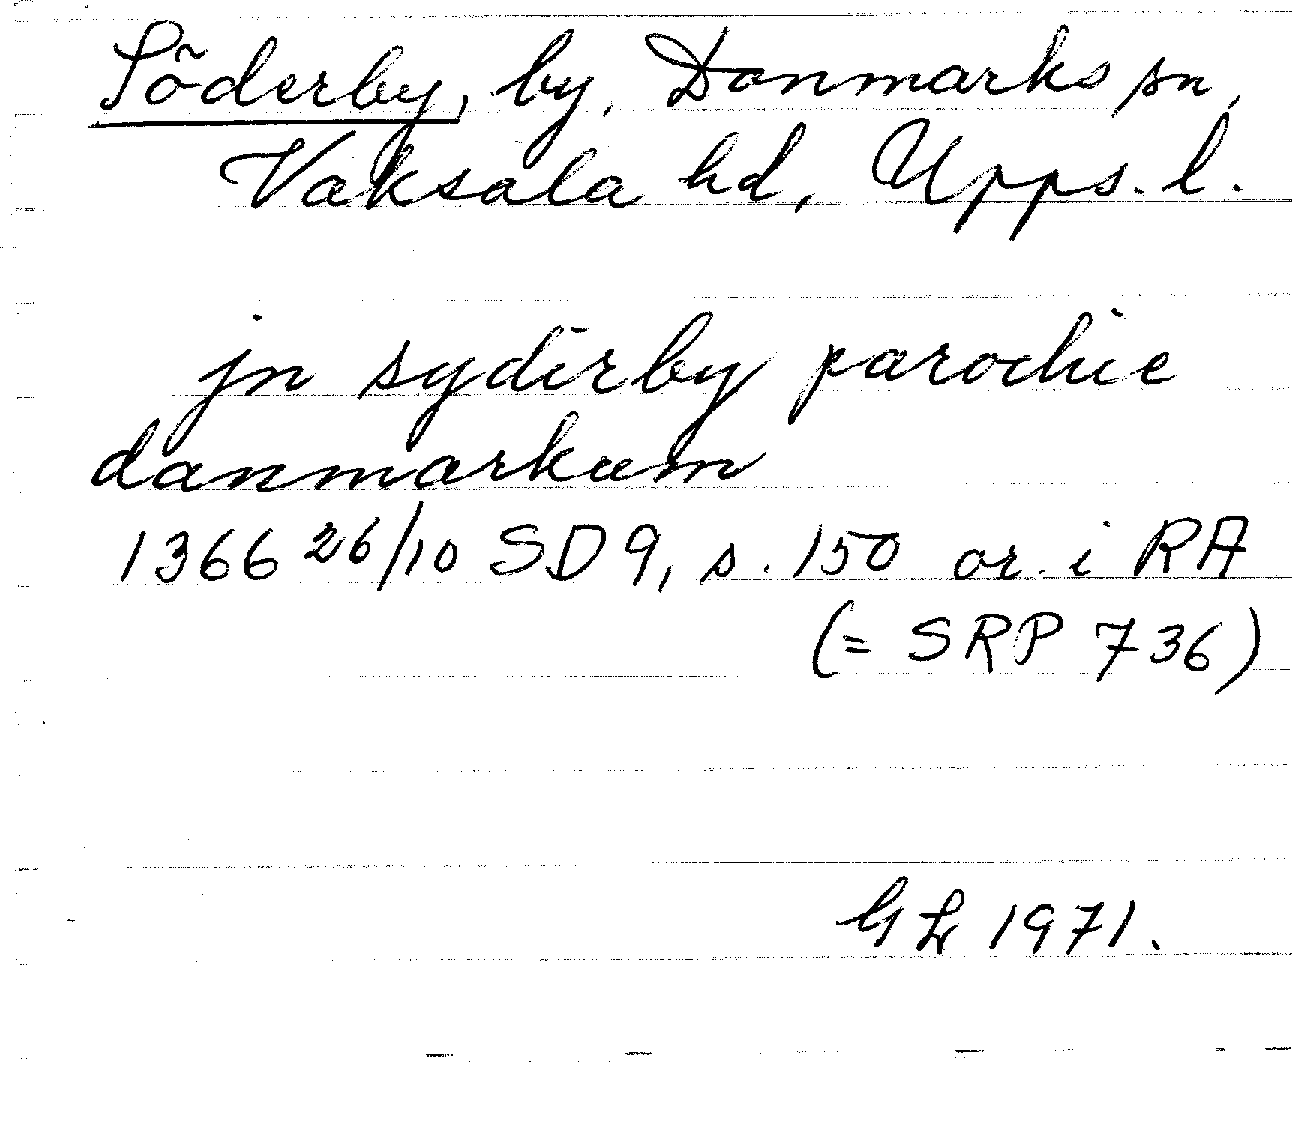 Söderby, by, Danmarks sn,
Vaksala hd, Upps. l.
jn sydirby parochie
danmarkum
1366 26/10 SD 9, s. 150 or. i RA
(= SRP 736)
GL 1971.